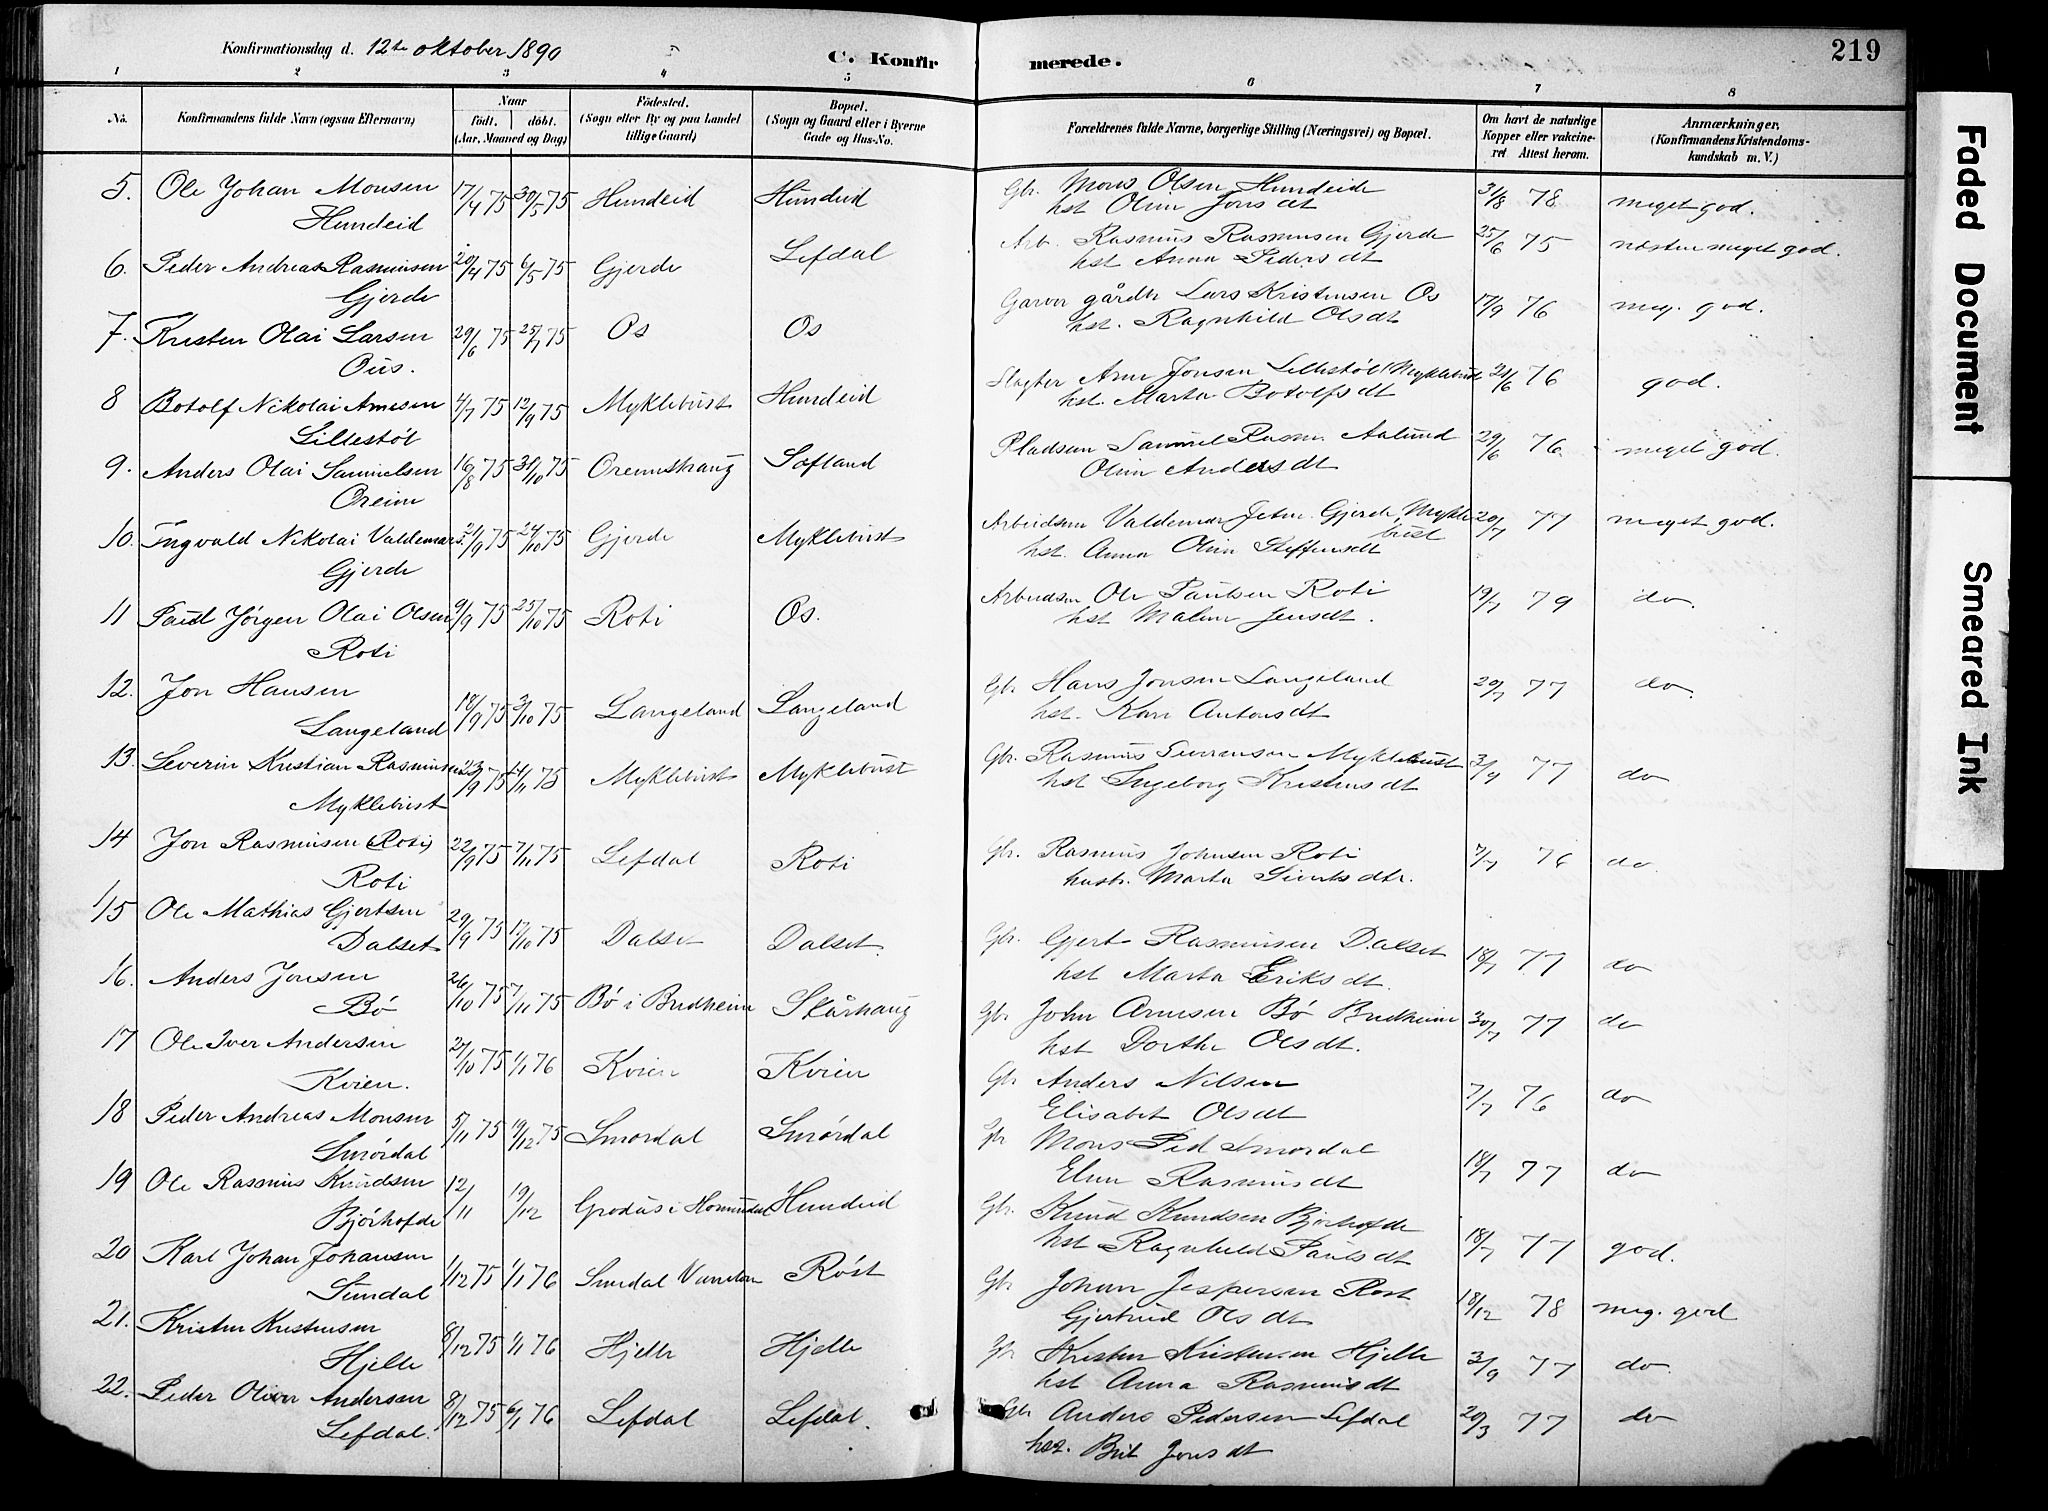 Konfirmationsdag d. 12te oktober 1890
C. Konfirmerede.
219
1 2 3 4 5 6 7 8
No.
Konfirmandens fulde Navn (ogsaa Efternavn)
Naar
födt. döbt.
(Aar, Maaned og Dag)
Födested.
(Sogn eller By og paa Landet
tillige Gaard)
Bopæl.
(Sogn og Gaard eller i Byerne
Gade og Hus-No.
Forældrenes fulde Navne, borgerlige Stilling (Næringsvei) og Bopæl.
Om havt de naturlige
Kopper eller vakcine-
ret Attest herom.
Anmærkninger,
(Konfirmandens Kristendoms-
kundskab m. V.)
5. Ole Johan Monsen 17/4 75 30/5 75 Hundeid Hundeid Gbr. Mons Olsen Hundeide 3/8 78 meget god.
Hundeid hst Oline Jonsdt
6. Peder Andreas Rasmusen 20/4 75 6/5 75 Gjerde Lefdal Arb. Rasmus Rasmusen Gjerde 25/6 75 næsten meget god.
Gjerde hst Anna Pedersdt
7. Kristen Olai Larsen 29/6 75 25/7 75 Os Os Garver gårdbr Lars Kristensen Os 17/9 76 meg. god.
Ous. hst. Ragnhild Olsdt
8 Botolf Nikolai Arnesen 4/7 75 12/9 75 Myklebust Hundeid Slagter Arne Jonsen Lillestøl Myklebust 21/6 76 god.
Lillestøl hst. Marta Botolfsdt
9. Anders Olai Samuelsen 16/8 75 31/10 75 Oreimshaug Sofland Pladsm Samuel Rasm. Aalund 29/6 76. meget god.
Oreim Oline Andersdt
10. Ingvald Nikolai Valdemars 21/9 75 24/10 75 Gjerde Myklebust Arbeidsm Valdemar Jetm. Gjerde, Mykle 20/7 77 meget god.
bust
Gjerde hst. Anna Oline Steffensdt
11 Paul Jørgen Olai Olsen 9/9 75 25/10 75 Roti Os. Arbeidsm Ole Paulsen Roti 19/7 79 do.
Roti hst Maline Jensdt.
12. Jon Hansen 18/9 75 3/10 75 Langeland Langeland Gbr Hans Jonsen Langeland 20/7 77 do.
Langeland hst. Kari Antonsdt
13. Severin Kristian Rasmusen 23/9 75 14/11 75 Myklebust Myklebust Gbr. Rasmus Severensen Myklebust 3/9 77 do
Myklebust hst Ingeborg Kristensdt
14 Jon Rasmusen (Roti) 22/9 75 7/11 75 Lefdal Roti Gbr. Rasmus Johnsen Roti 7/7 76 do.
Roti hustr. Marta Sivertsdtr.
15 Ole Mathias Gjertsen 29/9 75 17/10 75 Dalset Dalset. Gbr. Gjert Rasmusen Dalset 18/7 77 do
Dalset hst Marta Eriksdt.
16. Anders Jonsen 26/10 75 7/11 75 Bø i Bredheim Skårhaug Gbr John Arnesen Bø Bredheim 30/7 77 do
Bø hst Dorthe Olsdt.
17 Ole Iver Andersen 27/10 75 1/1 76 Kvien Kvien Gbr Anders Nilsen 7/7 76 do
Kvien. Elisabet Olsdt
18 Peder Andreas Monsen 5/11 75 19/12 75 Smørdal Smørdal Gbr Mons Ped Smørdal 18/7 77 do
Smørdal Eline Rasmusdt
19 Ole Rasmus Knudsen 12/11 19/12 Grodås i Hornindal Hundeid Gbr. Knud Knudsen Bjørhofde 18/7 77 god.
Bjørhofde hst Ragnhild Paulsdt
20 Karl Johan Johansen 1/12 75 1/1 76 Smedal Røst Gbr Johan Jespersen Røst 18/12 78 meg. god
Gjertrud Olsdt
21. Kristen Kristensen 8/12 75 1/1 76 Hjelle Hjelle Gbr Kristen Kristensen Hjelle 3/9 77 do.
Hjelle hst Anna Rasmusdt
22. Peder Oliver Andersen 8/12 75 6/1 76 Lefdal Lefdal. Gbr Anders Pedersen Lefdal 20/3 77 do
Lefdal. hst. Brit Jonsdt
Faded Document
Smeared Ink